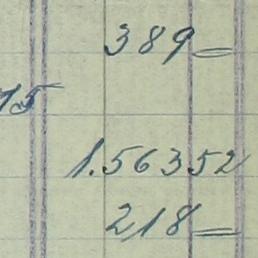 389=
15
1.56352
218=